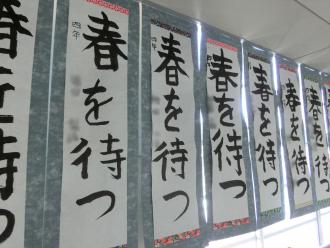 春を待つ
春を待つ
四年
春を待つ
四年
春を待つ
春を待つ
春を待つ
春を待つ
春を待つ